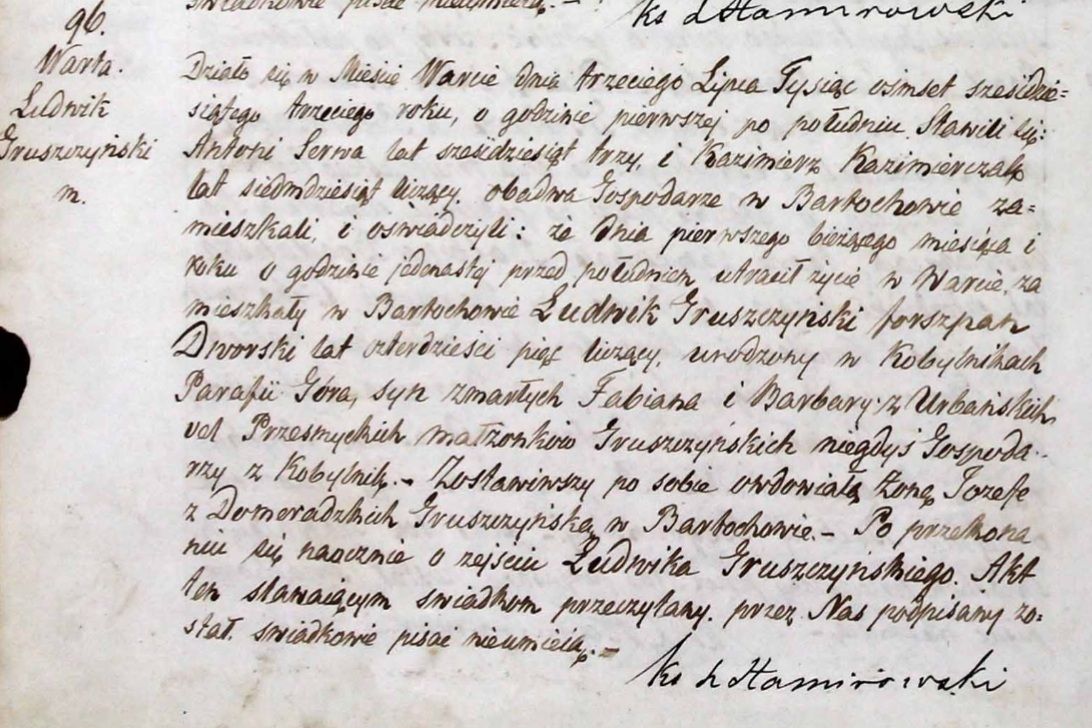 świadkowie pisać nieumieją. –
ks. d Hamirowski
96.
Warta.
Ludwik
Gruszczyński
m.
Działo się w Mieście Warcie dnia trzeciego Lipca Tysiąc ośmset sześćdzie=
siątego trzeciego roku, o godzinie pierwszej po południu. Stawili się:
Antoni Serwa lat sześćdziesiąt trzy, i Kazimierz Kazimierczak
lat siedmdziesiąt liczący, obadwa Gospodarze w Bartochowie za=
mieszkali, i oświadczyli: że dnia pierwszego bieżącego miesiąca i
roku o godzinie jedenastej przed południem utracił życie w Warcie, za
mieszkały w Bartochowie Ludwik Gruszczyński forszpan
Dworski lat czterdzieści pięć liczący, urodzony w Kobylnikach
Parafii Góra, syn zmarłych Fabiana i Barbary z Urbańskich
vel Przesmyckich małżonków Gruszczyńskich niegdyś Gospoda-
rzy z Kobylnik. – Zostawiwszy po sobie owdowiałą Żonę Jozefę
z Domeradzkich Gruszczyńską w Bartochowie. – Po przekona
niu się naocznie o zejściu Ludwika Gruszczyńskiego. Akt
ten stawaiącym świadkom przeczytany, przez Nas podpisany zo=
stał. świadkowie pisać nieumieią. –
ks. d Hamirowski